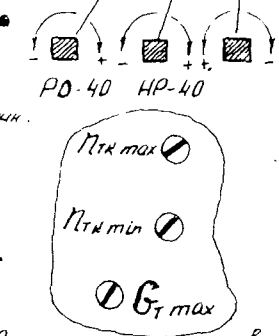 - + - + + -
РО-40 НР-40
ин.
nтк max
nтк min
Gт max